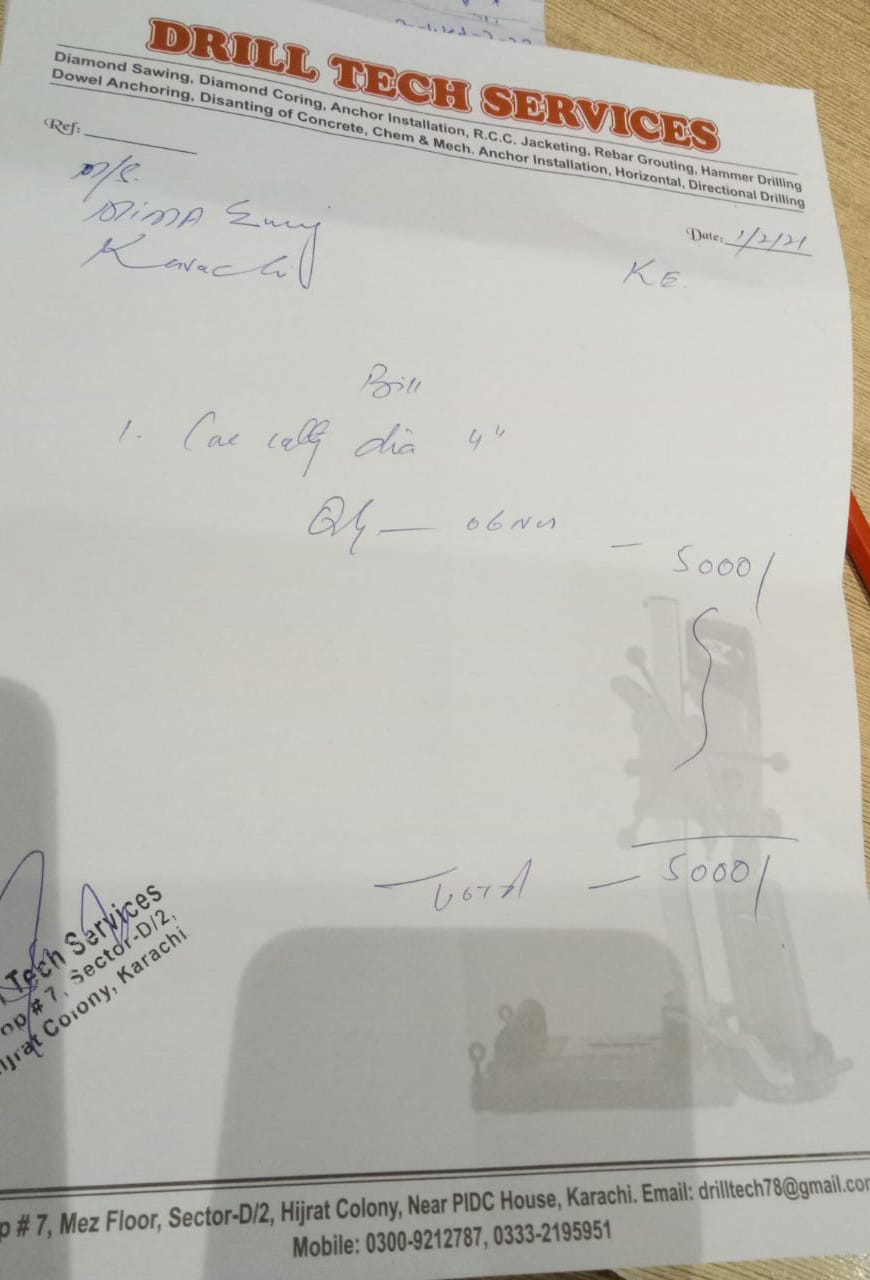 DRILL TECH SERVICES
Diamond Sawing, Diamond Coring, Anchor Installation, R.C.C. Jacketing, Rebar Grouting, Hammer Drilling
Dowel Anchoring, Disanting of Concrete, Chem & Mech. Anchor Installation, Horizontal, Directional Drilling
Ref:
M/S.
Karachi
Date: 1/2/21
KE.
Bill
1. dia 4"
Qty — 06 Nos
— 5000/
Total — 5000/
Tech Services
# 7, Sector-D/2,
Colony, Karachi
# 7, Mez Floor, Sector-D/2, Hijrat Colony, Near PIDC House, Karachi. Email: drilltech78@gmail.com
Mobile: 0300-9212787, 0333-2195951